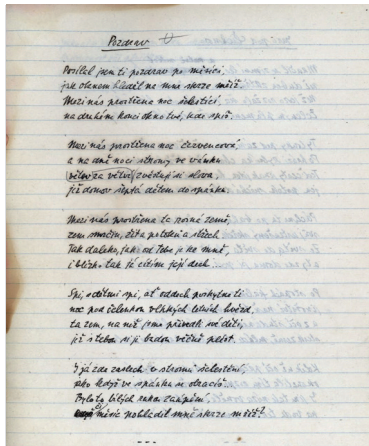 Pozdrav
Posílal jsem ti pozdrav po měsíci,
jak oknem hleděl na mně skrze mříž.
Mezi nás prostřena noc šelestící,
na druhém konci okno tvé, kde spíš.
Mezi nás prostřena noc červencová
a na dně noci stromy ve vánku
větev za větví zvěstují si slova,
jež domov šeptá dětem do spánku
Mezi nás prostřena ta rosná země,
zem smrčin, žita polehlá a
Tak daleko, jako od tebe je ke mně,
i blízko tak, já cítím její dech...
Spi, s dětmi spi, ať oddech poskytne ti
noc pod čelenkou vlhkých letních hvězd,
ta zem, na niž jsme přivedli své děti,
jež s tebou si ji budou věčně plést.
I já zde zaslech v stromů šelestění,
jako když ve spánku se obrací.
Byloto bílých rukou
měsíc pohladil mně skrze mříž?